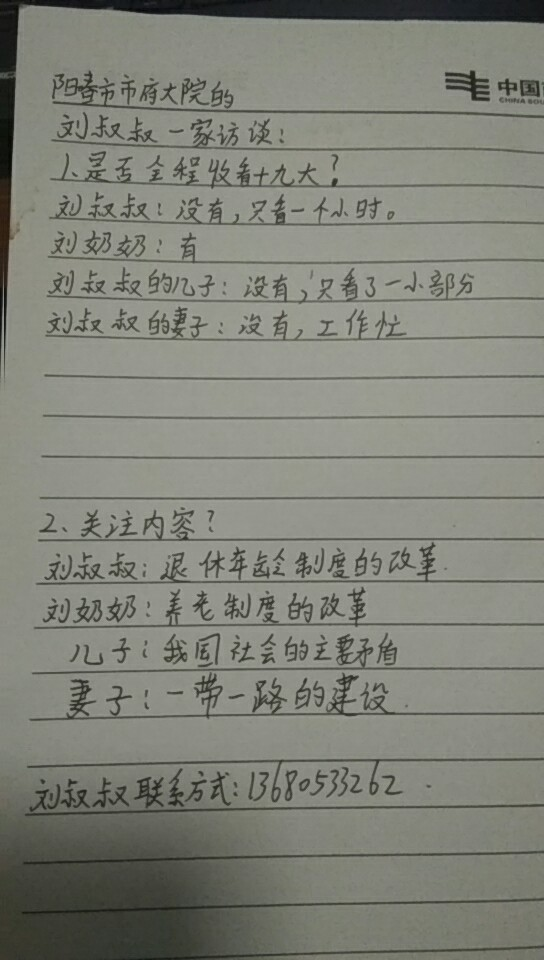 中国
CHINA SOU
阳春市市府大院的
刘叔叔一家访谈:
1、是否全程收看十九大?
刘叔叔:没有,只看一个小时。
刘奶奶:有
刘叔叔的儿子:没有,只看了一小部分
刘叔叔的妻子:没有,工作忙
2、关注内容?
刘叔叔:退休年龄制度的改革.
刘奶奶:养老制度的改革
儿子:我国社会的主要矛盾
妻子:一带一路的建设.
刘叔叔联系方式:13680533262.